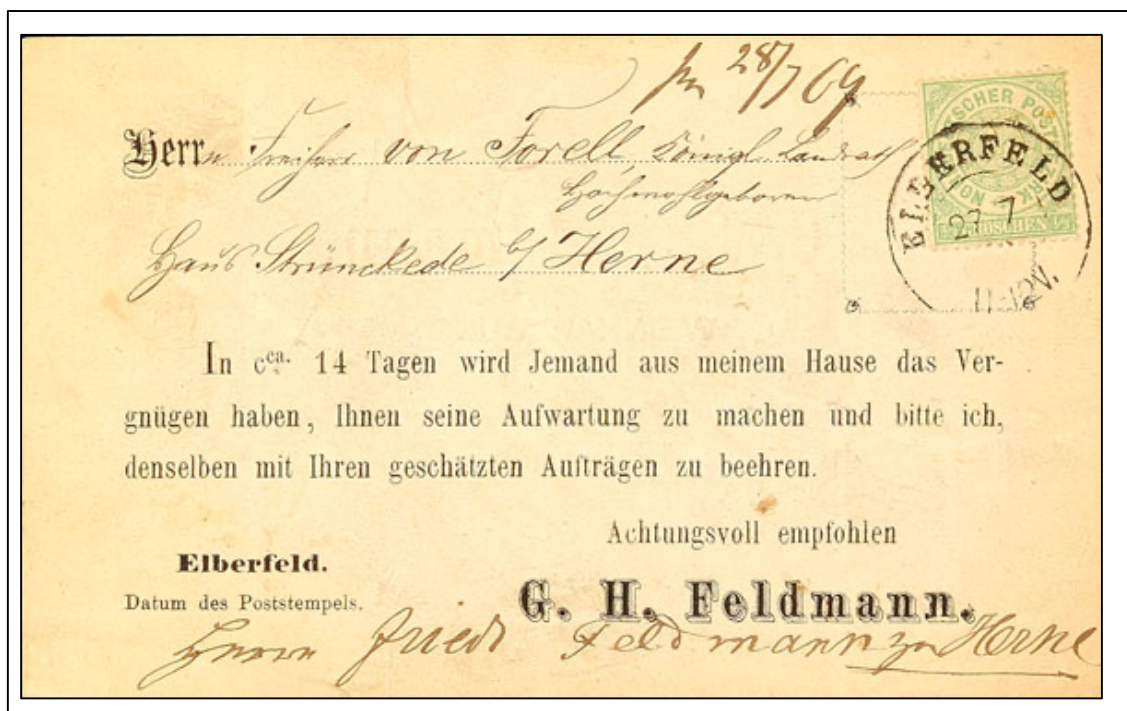 pr 28/7 69
Herrn Freiherr von Forell, Königl. Landrath
Hochwohlgeboren
Haus Strünckede b/ Herne
DEUTSCHER POST
NORD
GROSCHEN
ELBERFELD
27 7
11-12V.
In cca. 14 Tagen wird Jemand aus meinem Hause das Ver-
gnügen haben, Ihnen seine Aufwartung zu machen und bitte ich,
denselben mit Ihren geschätzten Aufträgen zu beehren.
Achtungsvoll empfohlen
Elberfeld.
Datum des Poststempels.
G. H. Feldmann.
Herrn Friedr Feldmann zu Herne